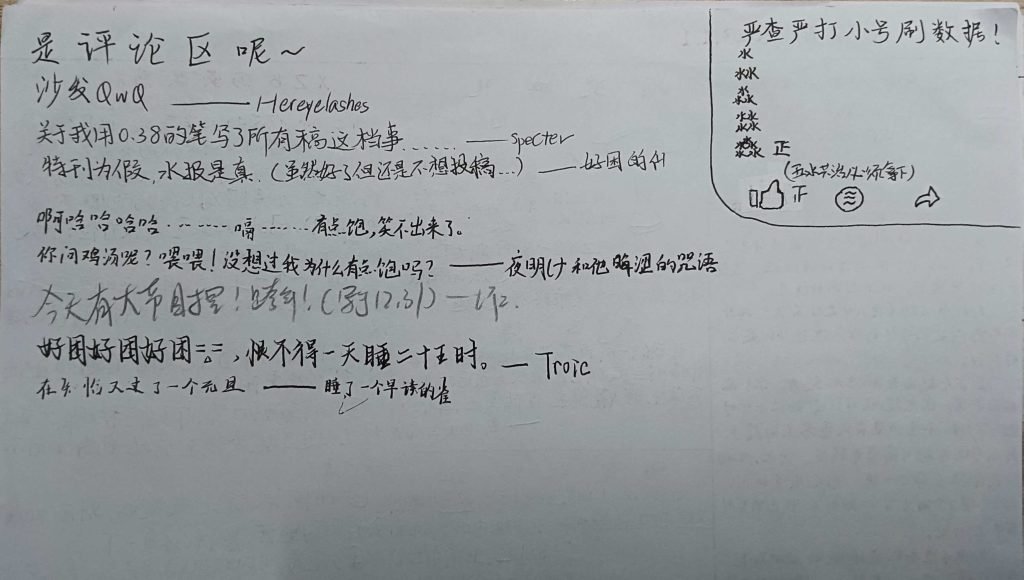 是评论区呢～
沙发QwQ ——— Hereyelashes
关于我用0.38的笔写了所有稿这档事...... ——specter
特刊为假，水报是真.（虽然好了但还是不想投稿...）——好困的
啊哈哈哈哈........嗝.......有点饱,笑不出来了。
你问鸡汤呢？喂喂！没想过我为什么有点饱吗？——夜明け和他晦涩的咒语
今天有大节目捏！跨年！（写于12.31）—
好困好困好困=△=，恨不得一天睡二十五时。—Troic
又过了一个元旦 ——睡了一个早读的雀
严查严打小号刷数据！
水
沝
淼
㵘
正
（五水共治必须拿下）
正